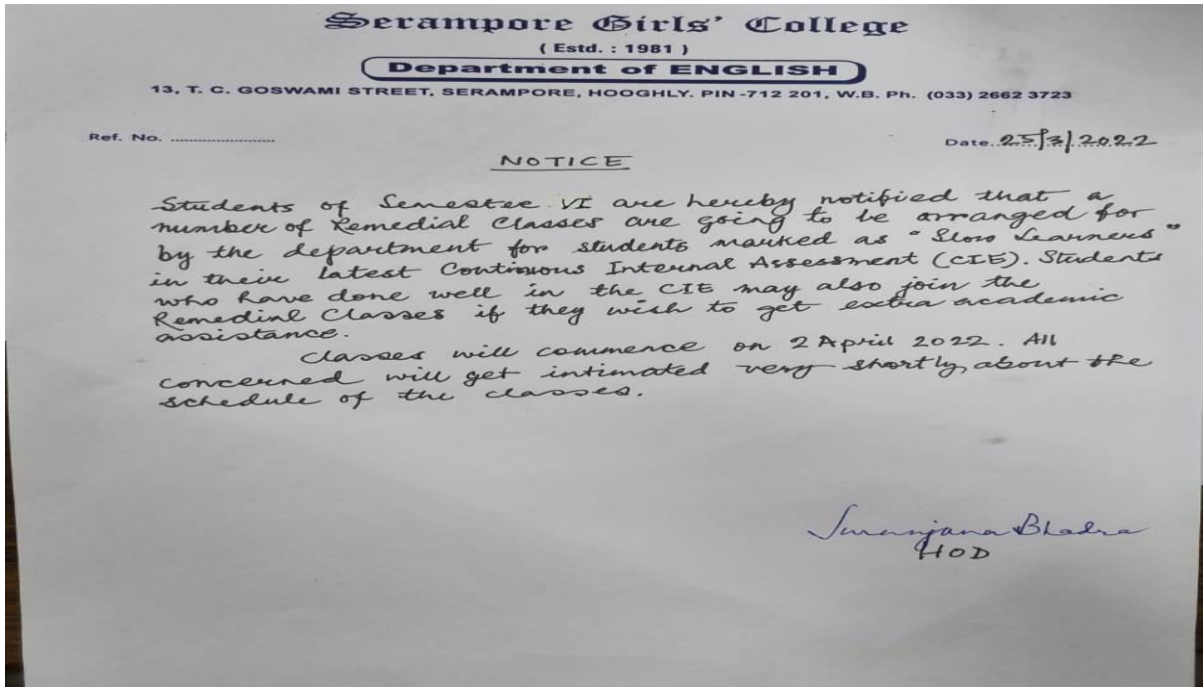 Serampore Girls' College
( Estd. : 1981 )
Department of ENGLISH
13, T. C. GOSWAMI STREET, SERAMPORE, HOOGHLY. PIN -712 201, W.B. Ph. (033) 2662 3723
Ref. No. ........................ Date..25/3/2022
NOTICE
Students of Semester VI are hereby notified that a
number of Remedial Classes are going to be arranged for
by the department for students marked as "Slow Learners"
in their latest Continuous Internal Assessment (CIE). Students
who have done well in the CIE may also join the
Remedial Classes if they wish to get extra academic
assistance.
Classes will commence on 2 April 2022. All
concerned will get intimated very shortly about the
schedule of the classes.
Suranjana Bhadra
HOD